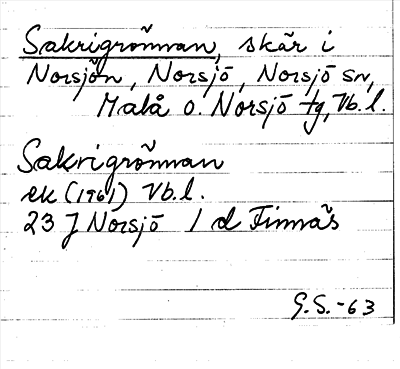 Sakrigrönnan, skär i
Norsjön, Norsjö, Norsjö sn,
Malå o. Norsjö tg, Vb.l.
Sakrigrönnan
ek (1961) Vb.l.
23 J Norsjö 1 d Finnäs
G.S.-63